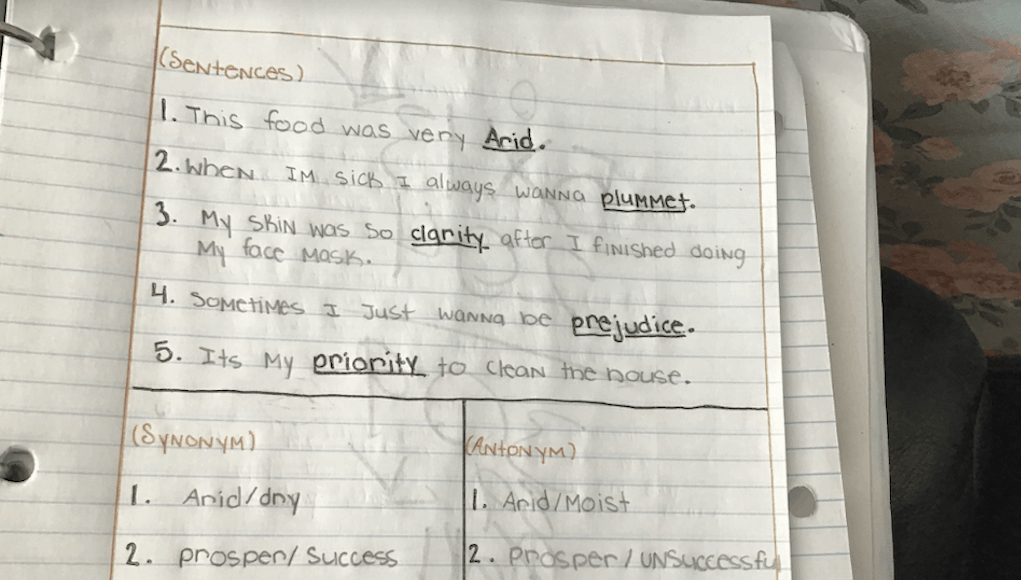 (Sentences)
1. This food was very Arid.
2. When IM sick I always wanna plummet.
3. My skin was so clarity after I finished doing
My face mask.
4. Sometimes I Just wanna be prejudice.
5. Its My priority to clean the house.
(Synonym)
(Antonym)
1. Arid/dry
1. Arid/Moist
2. prosper/ Success
2. prosper / UNSuccessfu